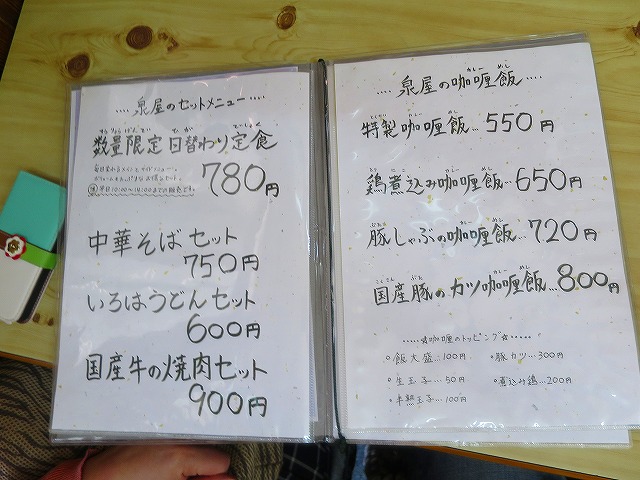 ‥‥泉屋のセットメニュー‥‥
数量限定日替わり定食
780円
中華そばセット
750円
いろはうどんセット
600円
国産牛の焼肉セット
900円
‥‥泉屋の咖喱飯‥‥
特製咖喱飯…550円
鶏煮込み咖喱飯…650円
豚しゃぶの咖喱飯…720円
国産豚のカツ咖喱飯…800円
‥‥☆咖喱のトッピング☆‥‥
○飯大盛…100円
○豚カツ…300円
○生玉子…50円
○煮込み鶏…200円
○半熟玉子…100円